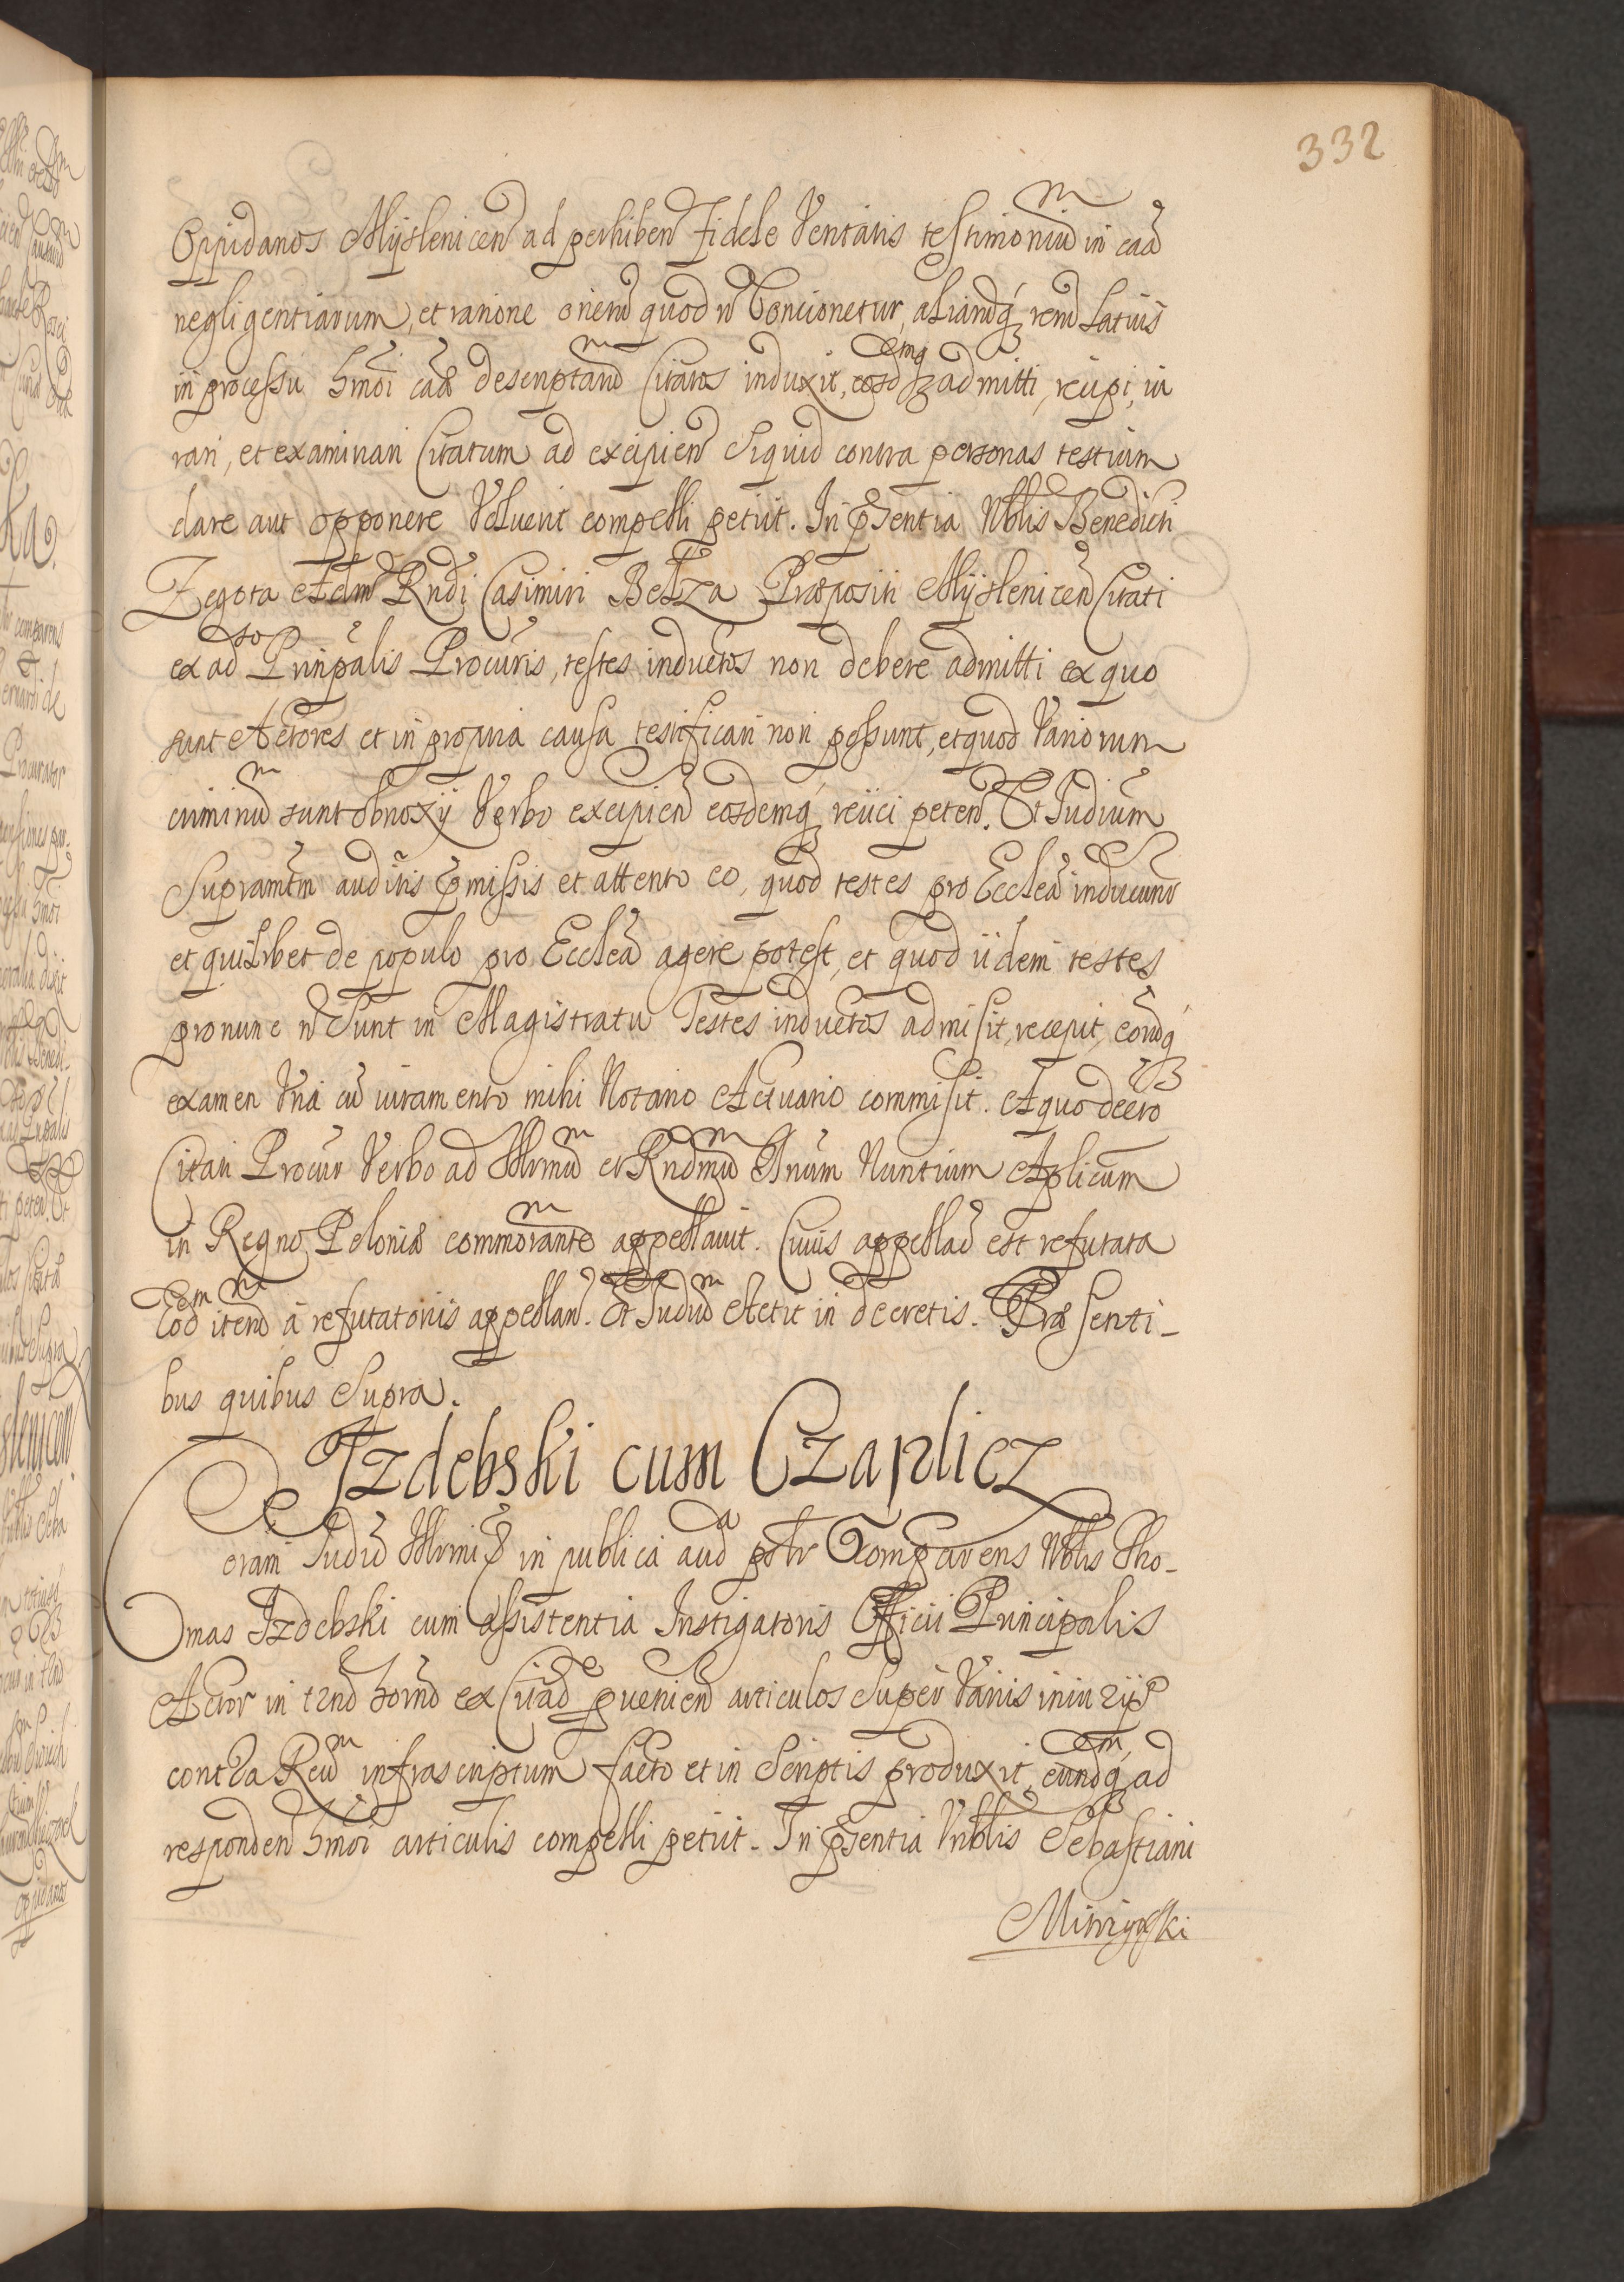 332
Oppidanos Myslenicen ad perhiben fidele Veritatis testimoniu in caa
negligentiarum, et ratione orien quod n Concionetur, aliarudq reru Latius
in processu hmoi cae descriptaru Citatos induxit, eosdemq admitti, recipi, iu
rari, et examinari Citatum ad excipien Siquid contra personas testium
dare aut opponere Voluerit compelli petiit. In psentia Nblis Benedicti
Zegota Adm Rndi Casimiri Bełza Præpositi Myslenicen Citati
ex adso Prinpalis Procuris, testes inductos non debere admitti ex quo
sunt Actores et in propria causa testificari non possunt, et quod Variorum
criminu sunt obnoxij Verbo excipien eosdemq reiici peten. Et Judium
Supramtm auditis pmissis et attento eo, quod testes pro Ecclea inducunr
et quilibet de populo pro Ecclea agere potest, et quod iidem testes
pronunc n Sunt in Magistratu Testes inductos admisit, recepit, eorudq
examen Vna cu iuramento mihi Notario Actuario commisit. A quo decro
Citati Procur Verbo ad Illrmu et Rndmu Dnum Nuntium Aplicum
in Regno Poloniæ commorante appellauit. Cuius appellao est refutata
Eod item à refutatoriis appellan. Et Judiu stetit in decretis. Præsenti-
bus quibus Supra.
Izdebski cum Czaplicz
Coram Judio Illrmiæ in publica auda pstr Comparens Nblis Tho-
mas Izdebski cum assistentia Instigatoris Officii Principalis
Actor in tno horno ex Citao pueniem articulos Super Variis iniuriis
contra Reum infrascriptum facto et in Scriptis produxit, eundemq ad
responden hmoi articulis compelli petiit. In psentia Nblis Sebastiani